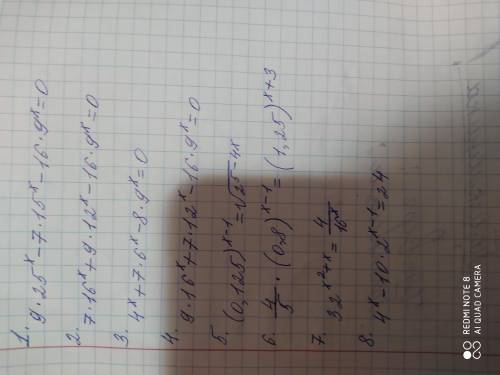 1.
9·25ˣ-7·15ˣ-16·9ˣ=0
2.
7·16ˣ+9·12ˣ-16·9ˣ=0
3.
4ˣ+7·6ˣ-8·9ˣ=0
4.
9·16ˣ+7·12ˣ-16·9ˣ=0
5.
(0,125)ˣ⁻¹=√2⁵⁻⁴ˣ
6.
4/5·(0,8)ˣ⁻¹=(1,25)ˣ⁺³
7.
32^(x²+x)=4/16ˣ
8.
4ˣ-10·2ˣ⁻¹=24
REDMI NOTE 8
AI QUAD CAMERA